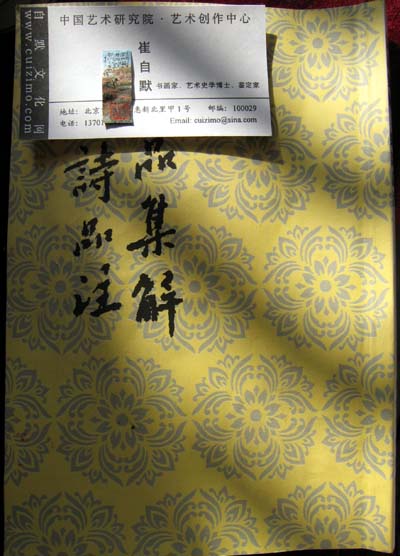 自默文化网
www.cuizimo.com
中国艺术研究院·艺术创作中心
崔自默
书画家、艺术史学博士、鉴定家
地址：北京 惠新北里甲1号 邮编：100029
电话：1370 Email: cuizimo@sina.com
品集解
詩品注